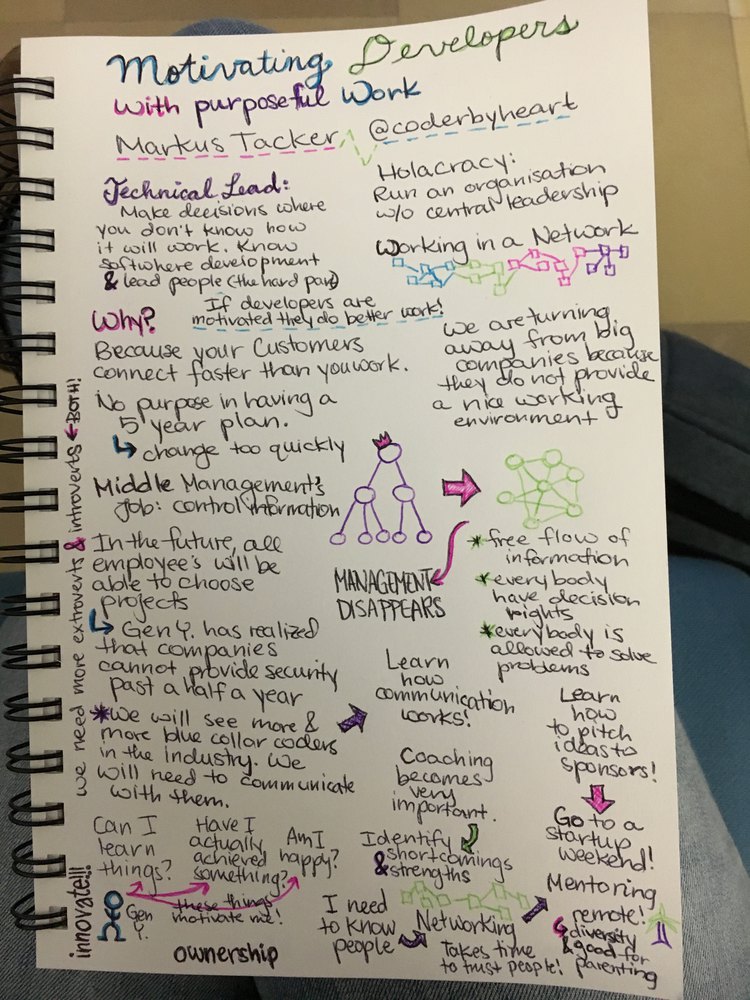 Motivating Developers
with purposeful Work
Markus Tacker @coderbyheart
Technical Lead:
Make decisions where
you don't know how
it will work. Know
softwhere development
& lead people (the hard part)
Holacracy:
Run an organisation
w/o central leadership
Working in a Network
Why?
If developers are
motivated they do better work!
Because your Customers
connect faster than you work.
No purpose in having a
5 year plan.
change too quickly
We are turning
away from big
companies because
they do not provide
a nice working
environment
Middle Management's
Job: control information
In the future, all
employee's will be
able to choose
projects
Gen Y. has realized
that companies
cannot provide security
past a half a year
*We will see more &
more blue collar coders
in the industry. We
will need to communicate
with them.
MANAGEMENT
DISAPPEARS
*free flow of
information
*everybody
have decision
rights
*everybody is
allowed to solve
problems
Learn
how
communication
works!
Coaching
becomes
very
important.
Identify
shortcomings
& strengths
Learn
how
to pitch
ideas to
sponsors!
Go to a
startup
weekend!
Mentoring
remote!
diversity
& good for
parenting
Can I
learn
things?
Have I
actually
achieved
something?
Am I
happy?
Gen
Y.
these things
motivate me!
ownership
I need
to know
people
Networking
Takes time
to trust people!
we need more extroverts & introverts ← BOTH!
innovate!!!